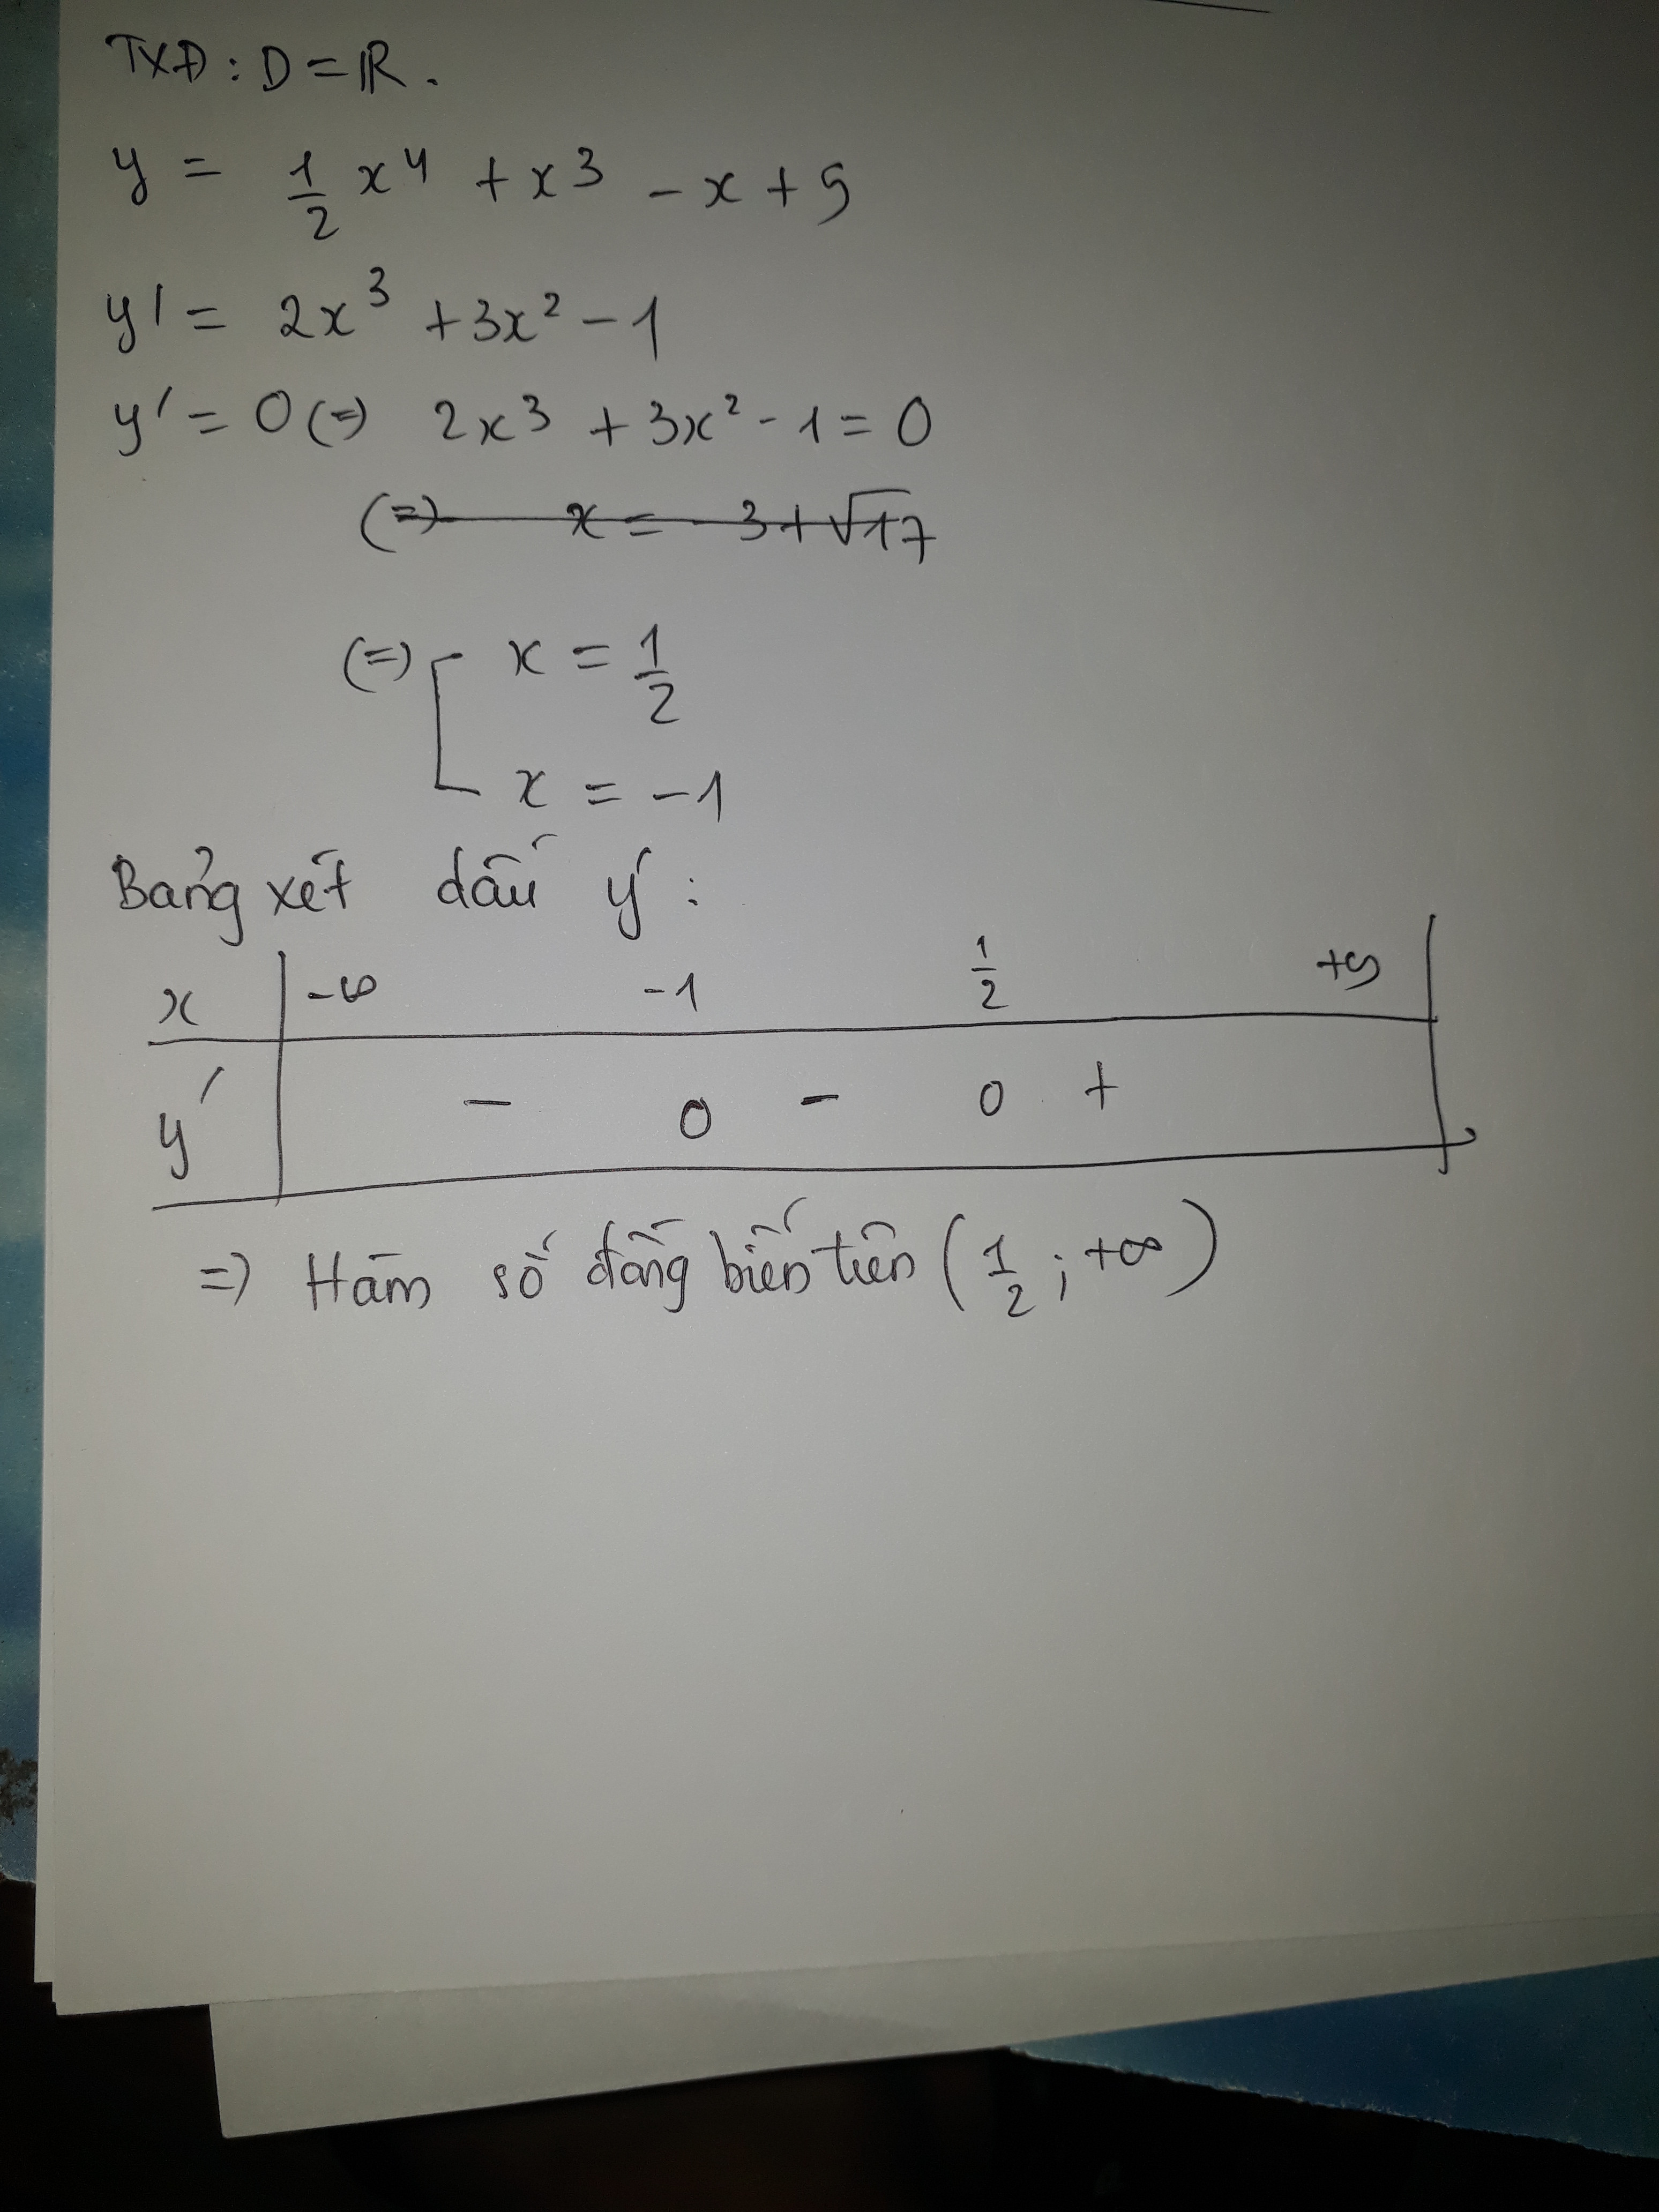 TXĐ: D = ℝ.
y = 1/2 x⁴ + x³ - x + 5
y' = 2x³ + 3x² - 1
y' = 0 (=) 2x³ + 3x² - 1 = 0
(=) x = -3 + √17
(=) [ x = 1/2
x = -1
Bảng xét dấu y':
x -∞ -1 1/2 +∞
y' - 0 - 0 +
=) Hàm số đồng biến trên (1/2; +∞)